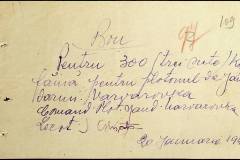 109
94
Bon
Pentru 300 (trei sute) K
făină pentru plotonul de jan
darmi Varvarovka
Comand. Plot. Jand. Varvarovka
20 Januarie 19